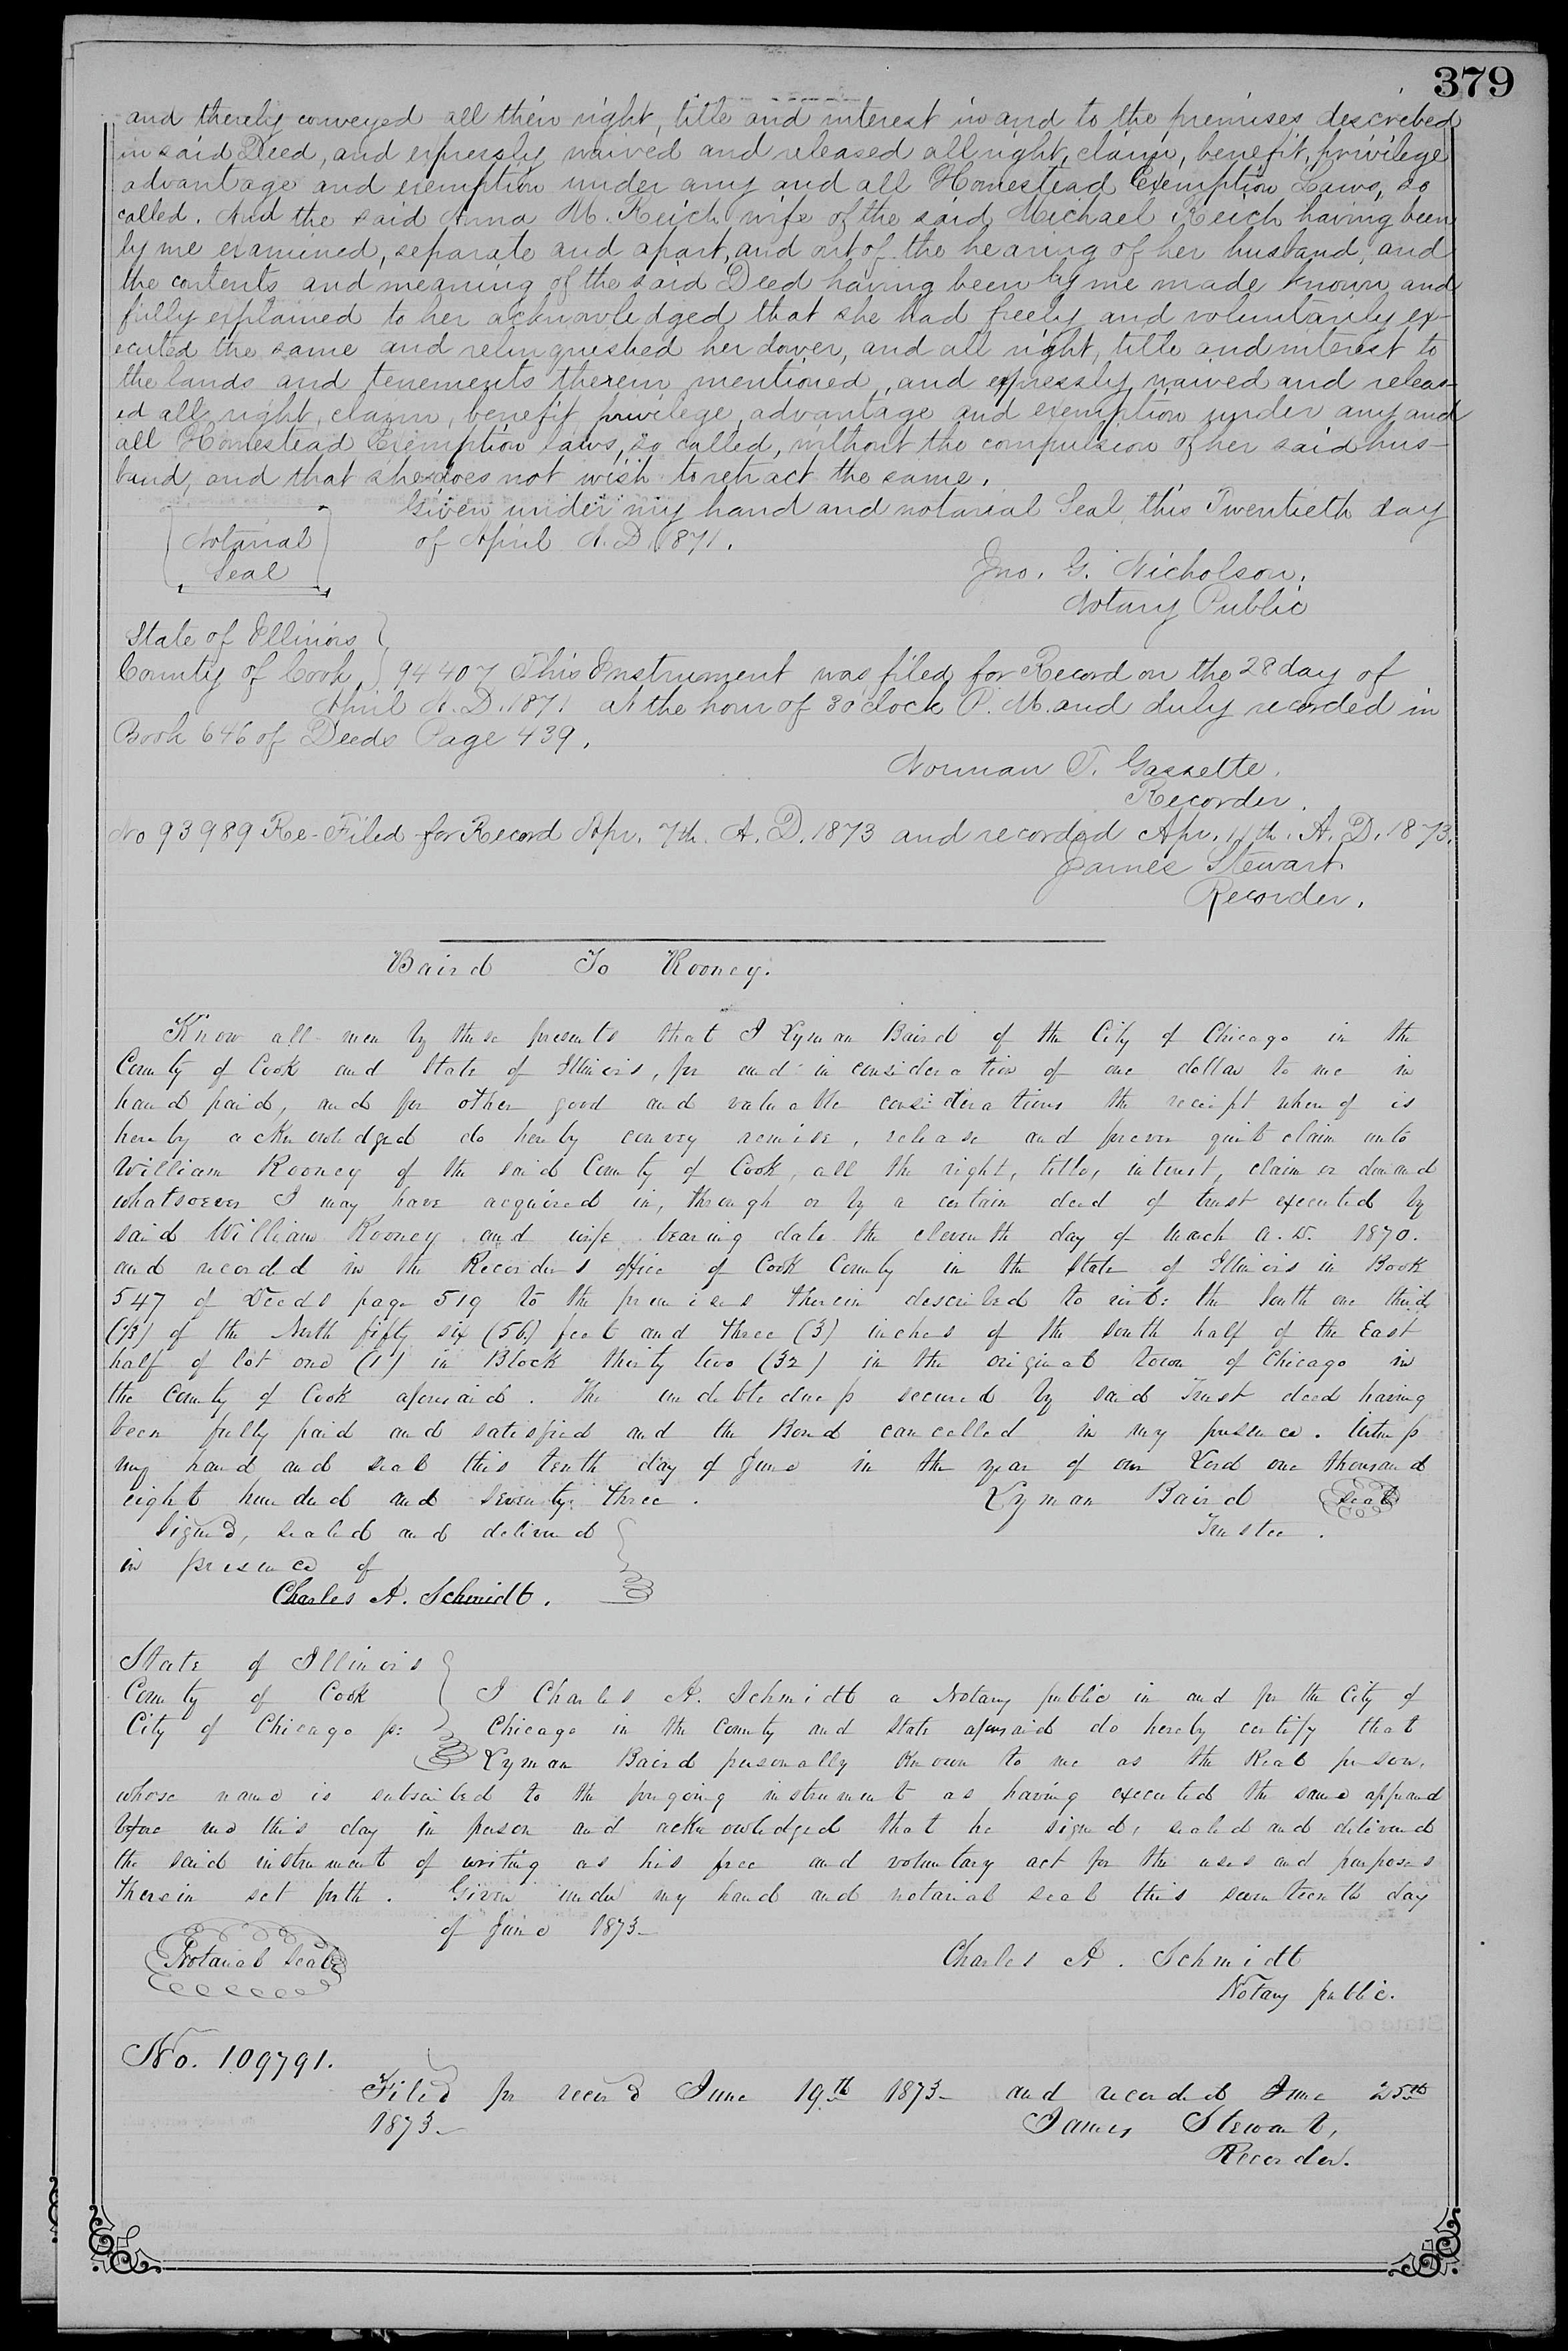 379
and thereby conveyed all their right, title and interest in and to the premises described
in said Deed, and expressly waived and released all right, claim, benefit, privilege
advantage and exemption under any and all Homestead Exemption Laws, so
called. And the said Anna M. Reich wife of the said Michael Reich having been
by me examined, separate and apart, and out of the hearing of her husband, and
the contents and meaning of the said Deed having been by me made known and
fully explained to her acknowledged that she had freely and voluntarily ex-
ecuted the same and relinquished her dower, and all right, title and interest to
the lands and tenements therein mentioned, and expressly waived and releas-
ed all right, claim, benefit, privilege, advantage and exemption under any and
all Homestead Exemption laws, so called, without the compulsion of her said hus-
band, and that she does not wish to retract the same.
Given under my hand and notarial Seal this Twentieth day
of April A. D. 1871.
Notarial
Seal
Jno. G. Nicholson.
Notary Public
State of Illinois
County of Cook } 94407 This Instrument was filed for Record on the 28 day of
April A. D. 1871 at the hour of 3 o'clock P. M. and duly recorded in
Book 646 of Deeds Page 439.
Norman T. Gassette.
Recorder.
No 93989 Re-Filed for Record Apr. 7th. A. D. 1873 and recorded Apr. 11th. A. D. 1873.
James Stewart.
Recorder.
Baird To Rooney.
Know all men by these presents that I Lyman Baird of the City of Chicago in the
County of Cook and State of Illinois, for and in consideration of one dollar to me in
hand paid, and for other good and valuable considerations the receipt whereof is
hereby acknowledged do hereby convey remise, release and forever quit claim unto
William Rooney of the said County of Cook, all the right, title, interest, claim or demand
whatsoever I may have acquired in, through or by a certain deed of trust executed by
said William Rooney and wife bearing date the eleventh day of March A. D. 1870.
and recorded in the Recorders office of Cook County in the State of Illinois in Book
547 of Deeds page 519 to the premises therein described to wit: the South one third
(1/3) of the North fifty six (56) feet and three (3) inches of the South half of the East
half of lot one (1) in Block thirty two (32) in the original town of Chicago in
the County of Cook aforesaid. The indebtedness secured by said Trust deed having
been fully paid and satisfied and the Bond cancelled in my presence. Witness
my hand and seal this tenth day of June in the year of our Lord one thousand
eight hundred and seventy three. Lyman Baird Seal
Signed, sealed and delivered Trustee.
in presence of
Charles A. Schmidt.
State of Illinois
County of Cook I Charles A. Schmidt a Notary public in and for the City of
City of Chicago ss: Chicago in the County and State aforesaid do hereby certify that
Lyman Baird personally known to me as the Real person,
whose name is subscribed to the foregoing instrument as having executed the same appeared
before me this day in person and acknowledged that he signed, sealed and delivered
the said instrument of writing as his free and voluntary act for the uses and purposes
therein set forth. Given under my hand and notarial seal this seventeenth day
of June 1873-
Notarial Seal
Charles A. Schmidt
Notary public.
No. 109791.
Filed for record June 19th 1873- and recorded June 25th
1873-
James Stewart,
Recorder.